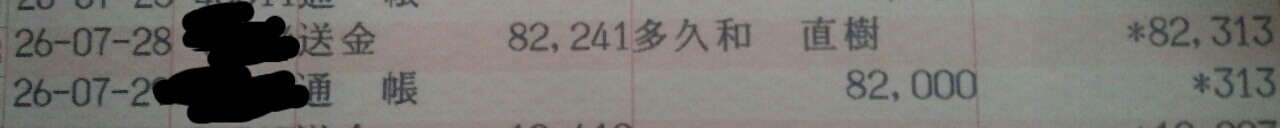 26-07-28 送金 82,241多久和 直樹 *82,313
26-07-2 通 帳 82,000 *313